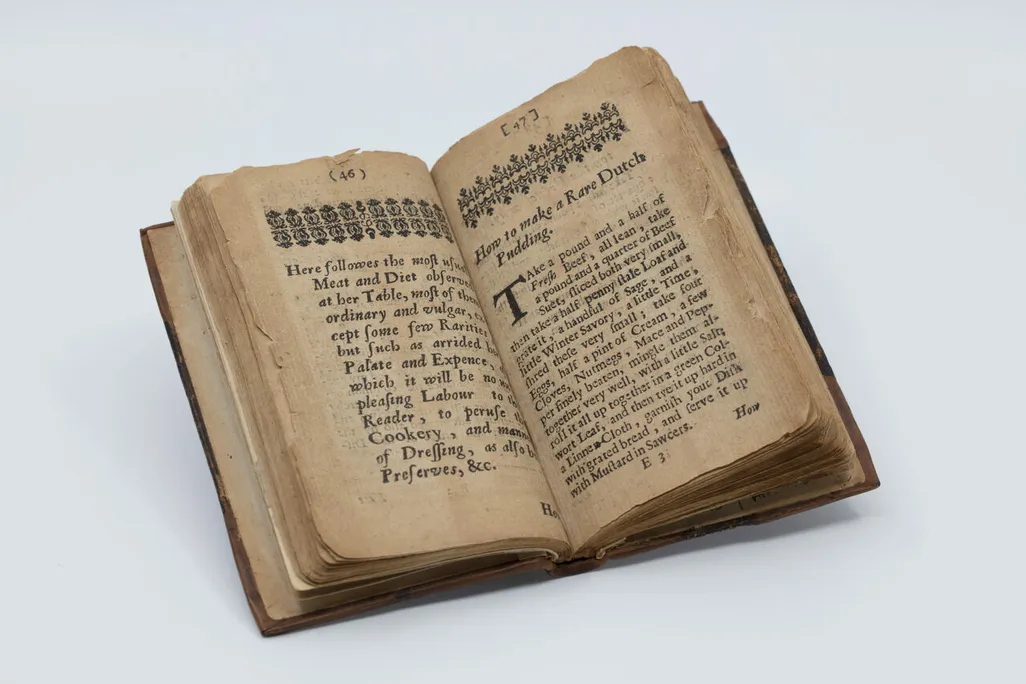 (46)
Here followes the moſt uſu
Meat and Diet obſerv
at her Table, moſt of the
ordinary and vulgar,
cept ſome few Rarities
but ſuch as arrided h
Palate and Expence
which it will be no
pleaſing Labour to
Reader, to peruſe
Cookery, and mann
of Dreſſing, as alſo
Preſerves, &c.
Ho
[47]
How to make a Rare Dutch
Pudding.
TAke a pound and a half of
Freſh Beef, all lean, take
a pound and a quarter of Beef
Suet, ſliced both very ſmall,
then take a half penny ſtale Loaf and
grate it, a handful of Sage, and a
little Winter Savory, a little Time,
ſhred theſe very ſmall, take four
Eggs, half a pint of Cream, a few
Cloves, Nutmegs, Mace and Pep-
per finely beaten, mingle them al-
together very well, with a little Salt,
roll it all up together in a green Col-
wort Leaf, and then tye it up hard in
a Linnen-Cloth, garniſh your Diſh
with grated bread, and ſerve it up
with Muſtard in Sawcers.
How
E 3